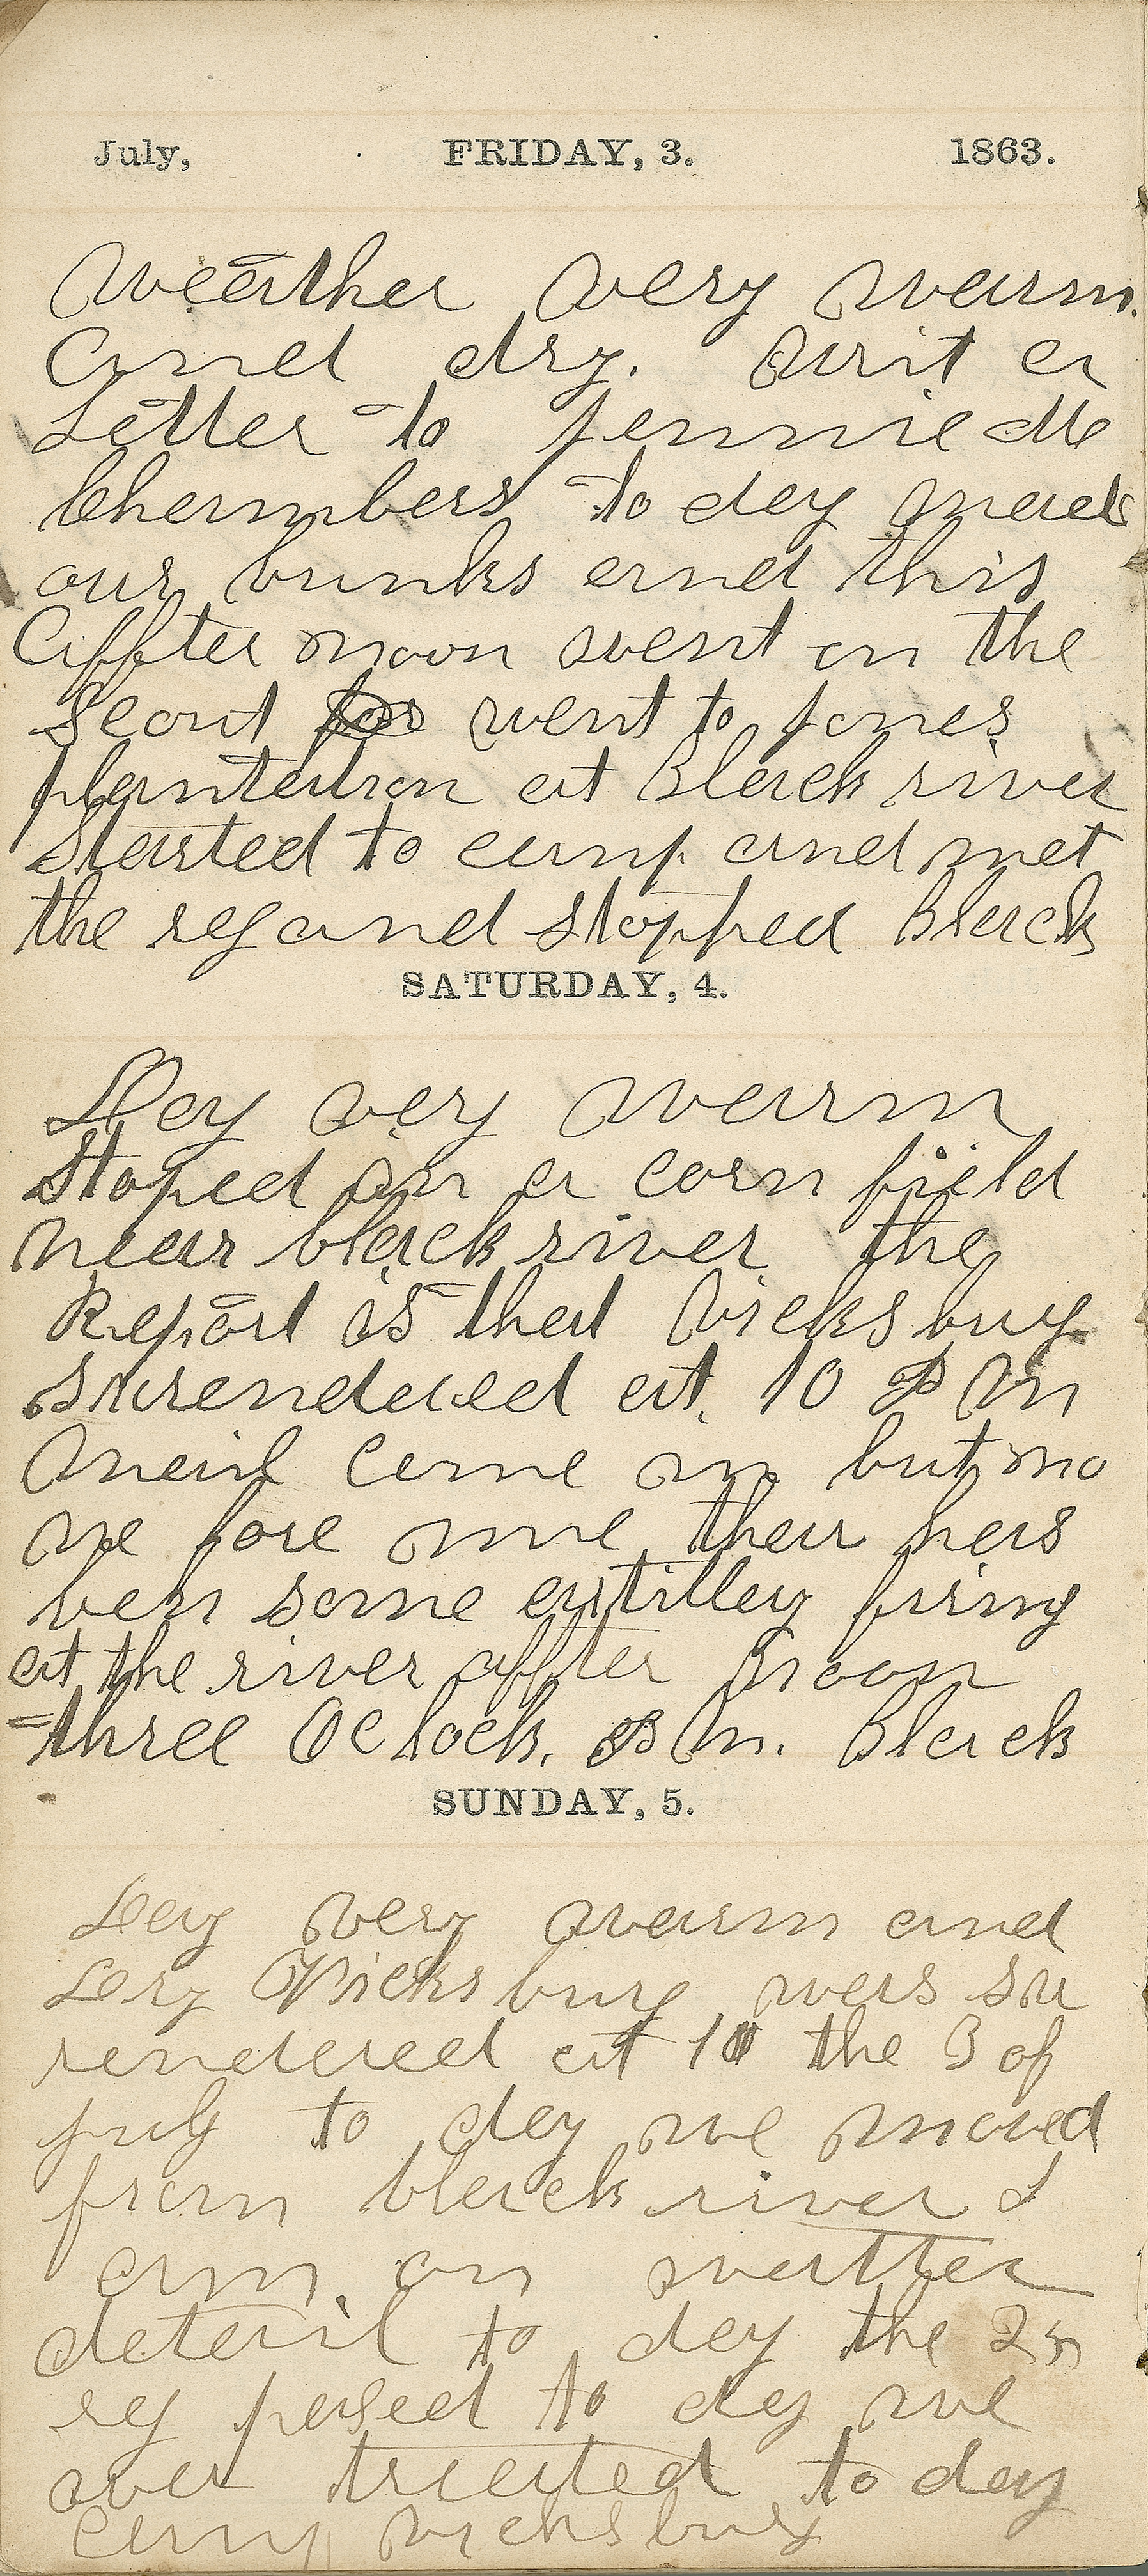 July, FRIDAY, 3. 1863.
Weather very warm
and dry. writ a
Letter to Jennie M
Chambers to day mad
our bunks and this
affter noon went on the
Scout went to Jones
plantation at Black river
Started to camp and met
the reg and stopped Black
SATURDAY, 4.
Day very warm
Stoped in a corn field
near black river the
Report is that Vicksburg
surendered at 10 P M
Mail came in but no
ne fore me thair has
ben some artilley firing
at the river affter noon
three Oclock. P M. Black
SUNDAY, 5.
Day very warm and
Dry Vicksburg was su
rendered at 10 the 3 of
July to day we moved
from black river I
am on watter
detail to day the 2n
reg pased to day we
wer treated to day
camp vicksburg